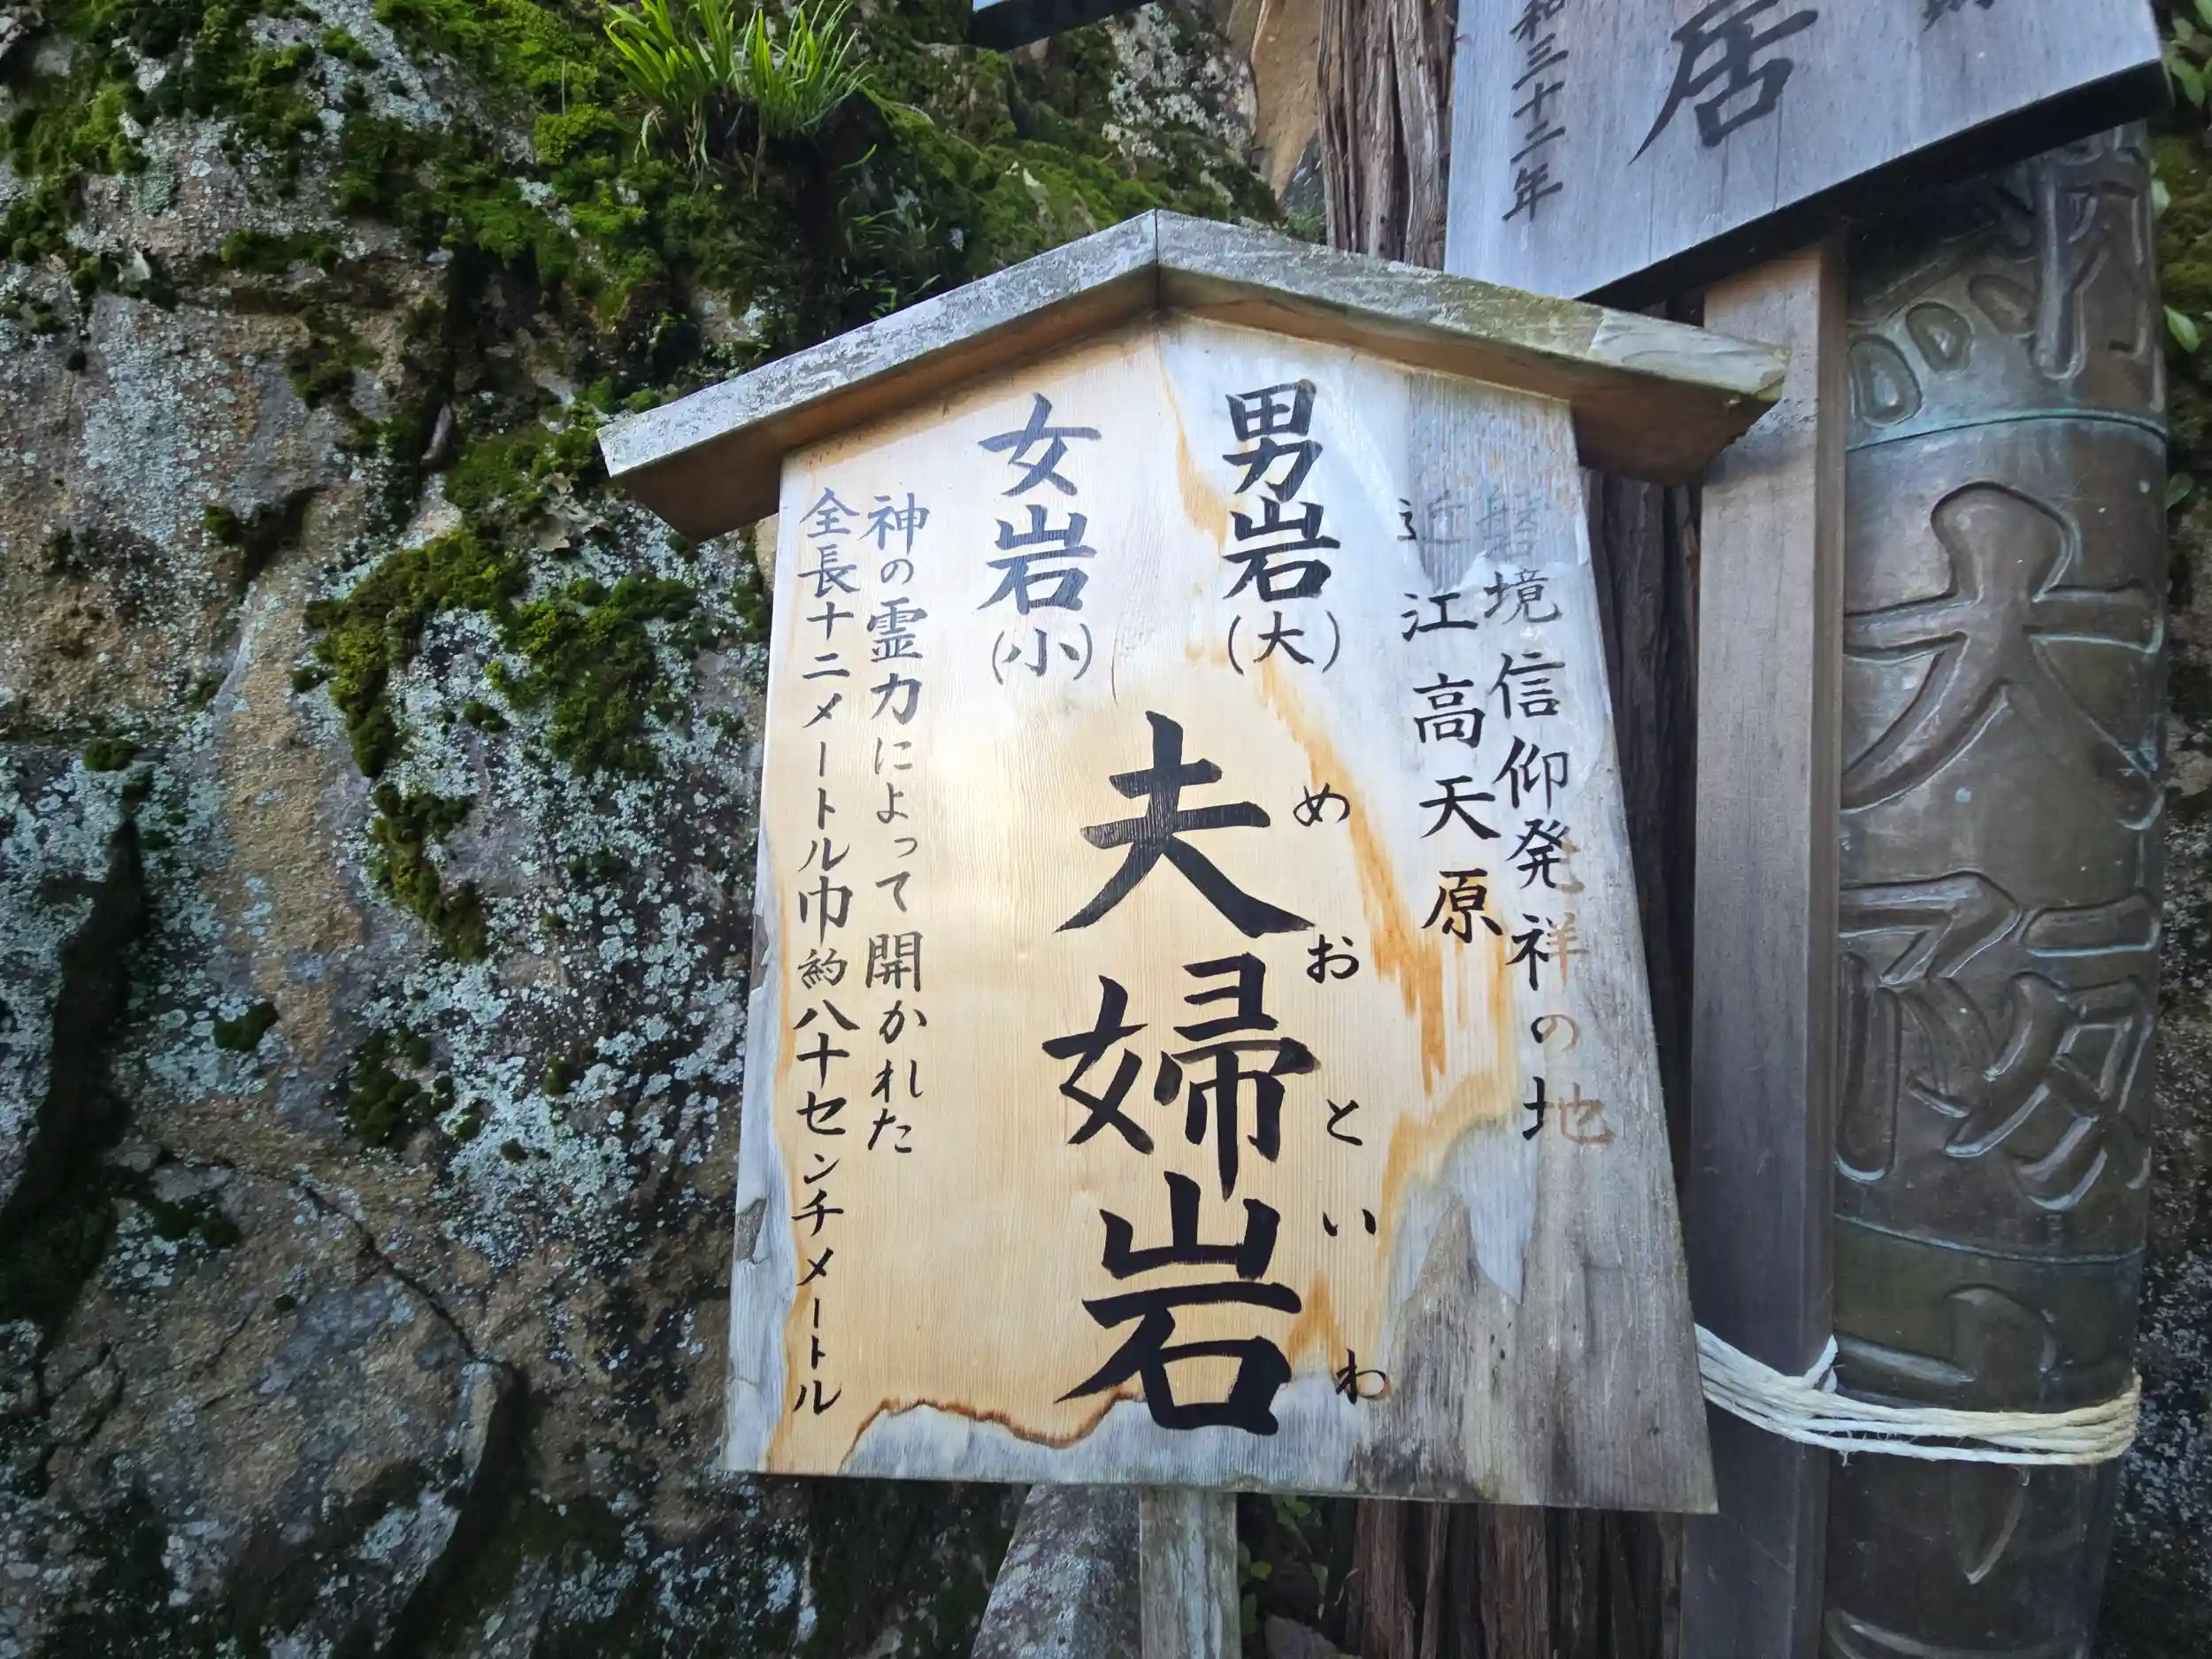 磐境信仰発祥の地
近江高天原
男岩(大)
女岩(小)
めおといわ
夫婦岩
神の霊力によって開かれた
全長十二メートル巾約八十センチメートル
居
和三十二年
太陽